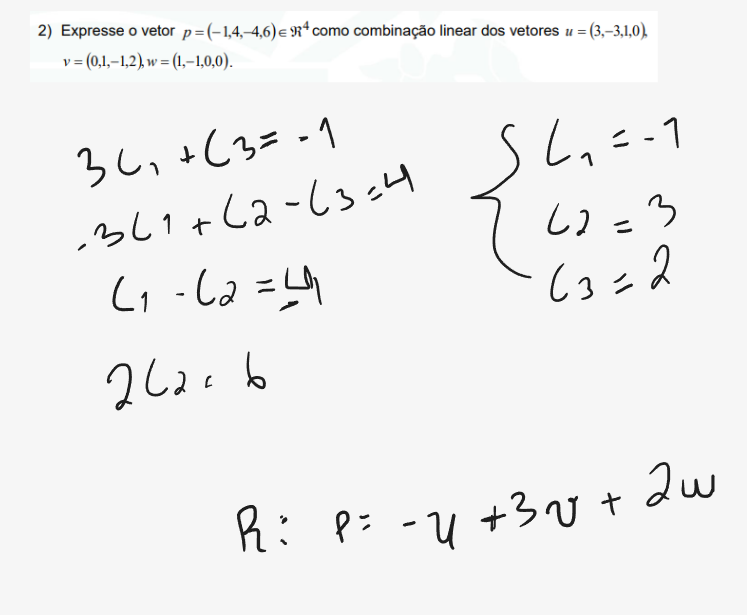 2) Expresse o vetor p = (−1,4,−4,6) ∈ ℜ⁴ como combinação linear dos vetores u = (3,−3,1,0),
v = (0,1,−1,2), w = (1,−1,0,0).
3C1 + C3 = -1
-3C1 + C2 - C3 = 4
C1 - C2 = -4
2C2 = 6
{ C1 = -1
C2 = 3
C3 = 2
R: P = -u + 3v + 2w